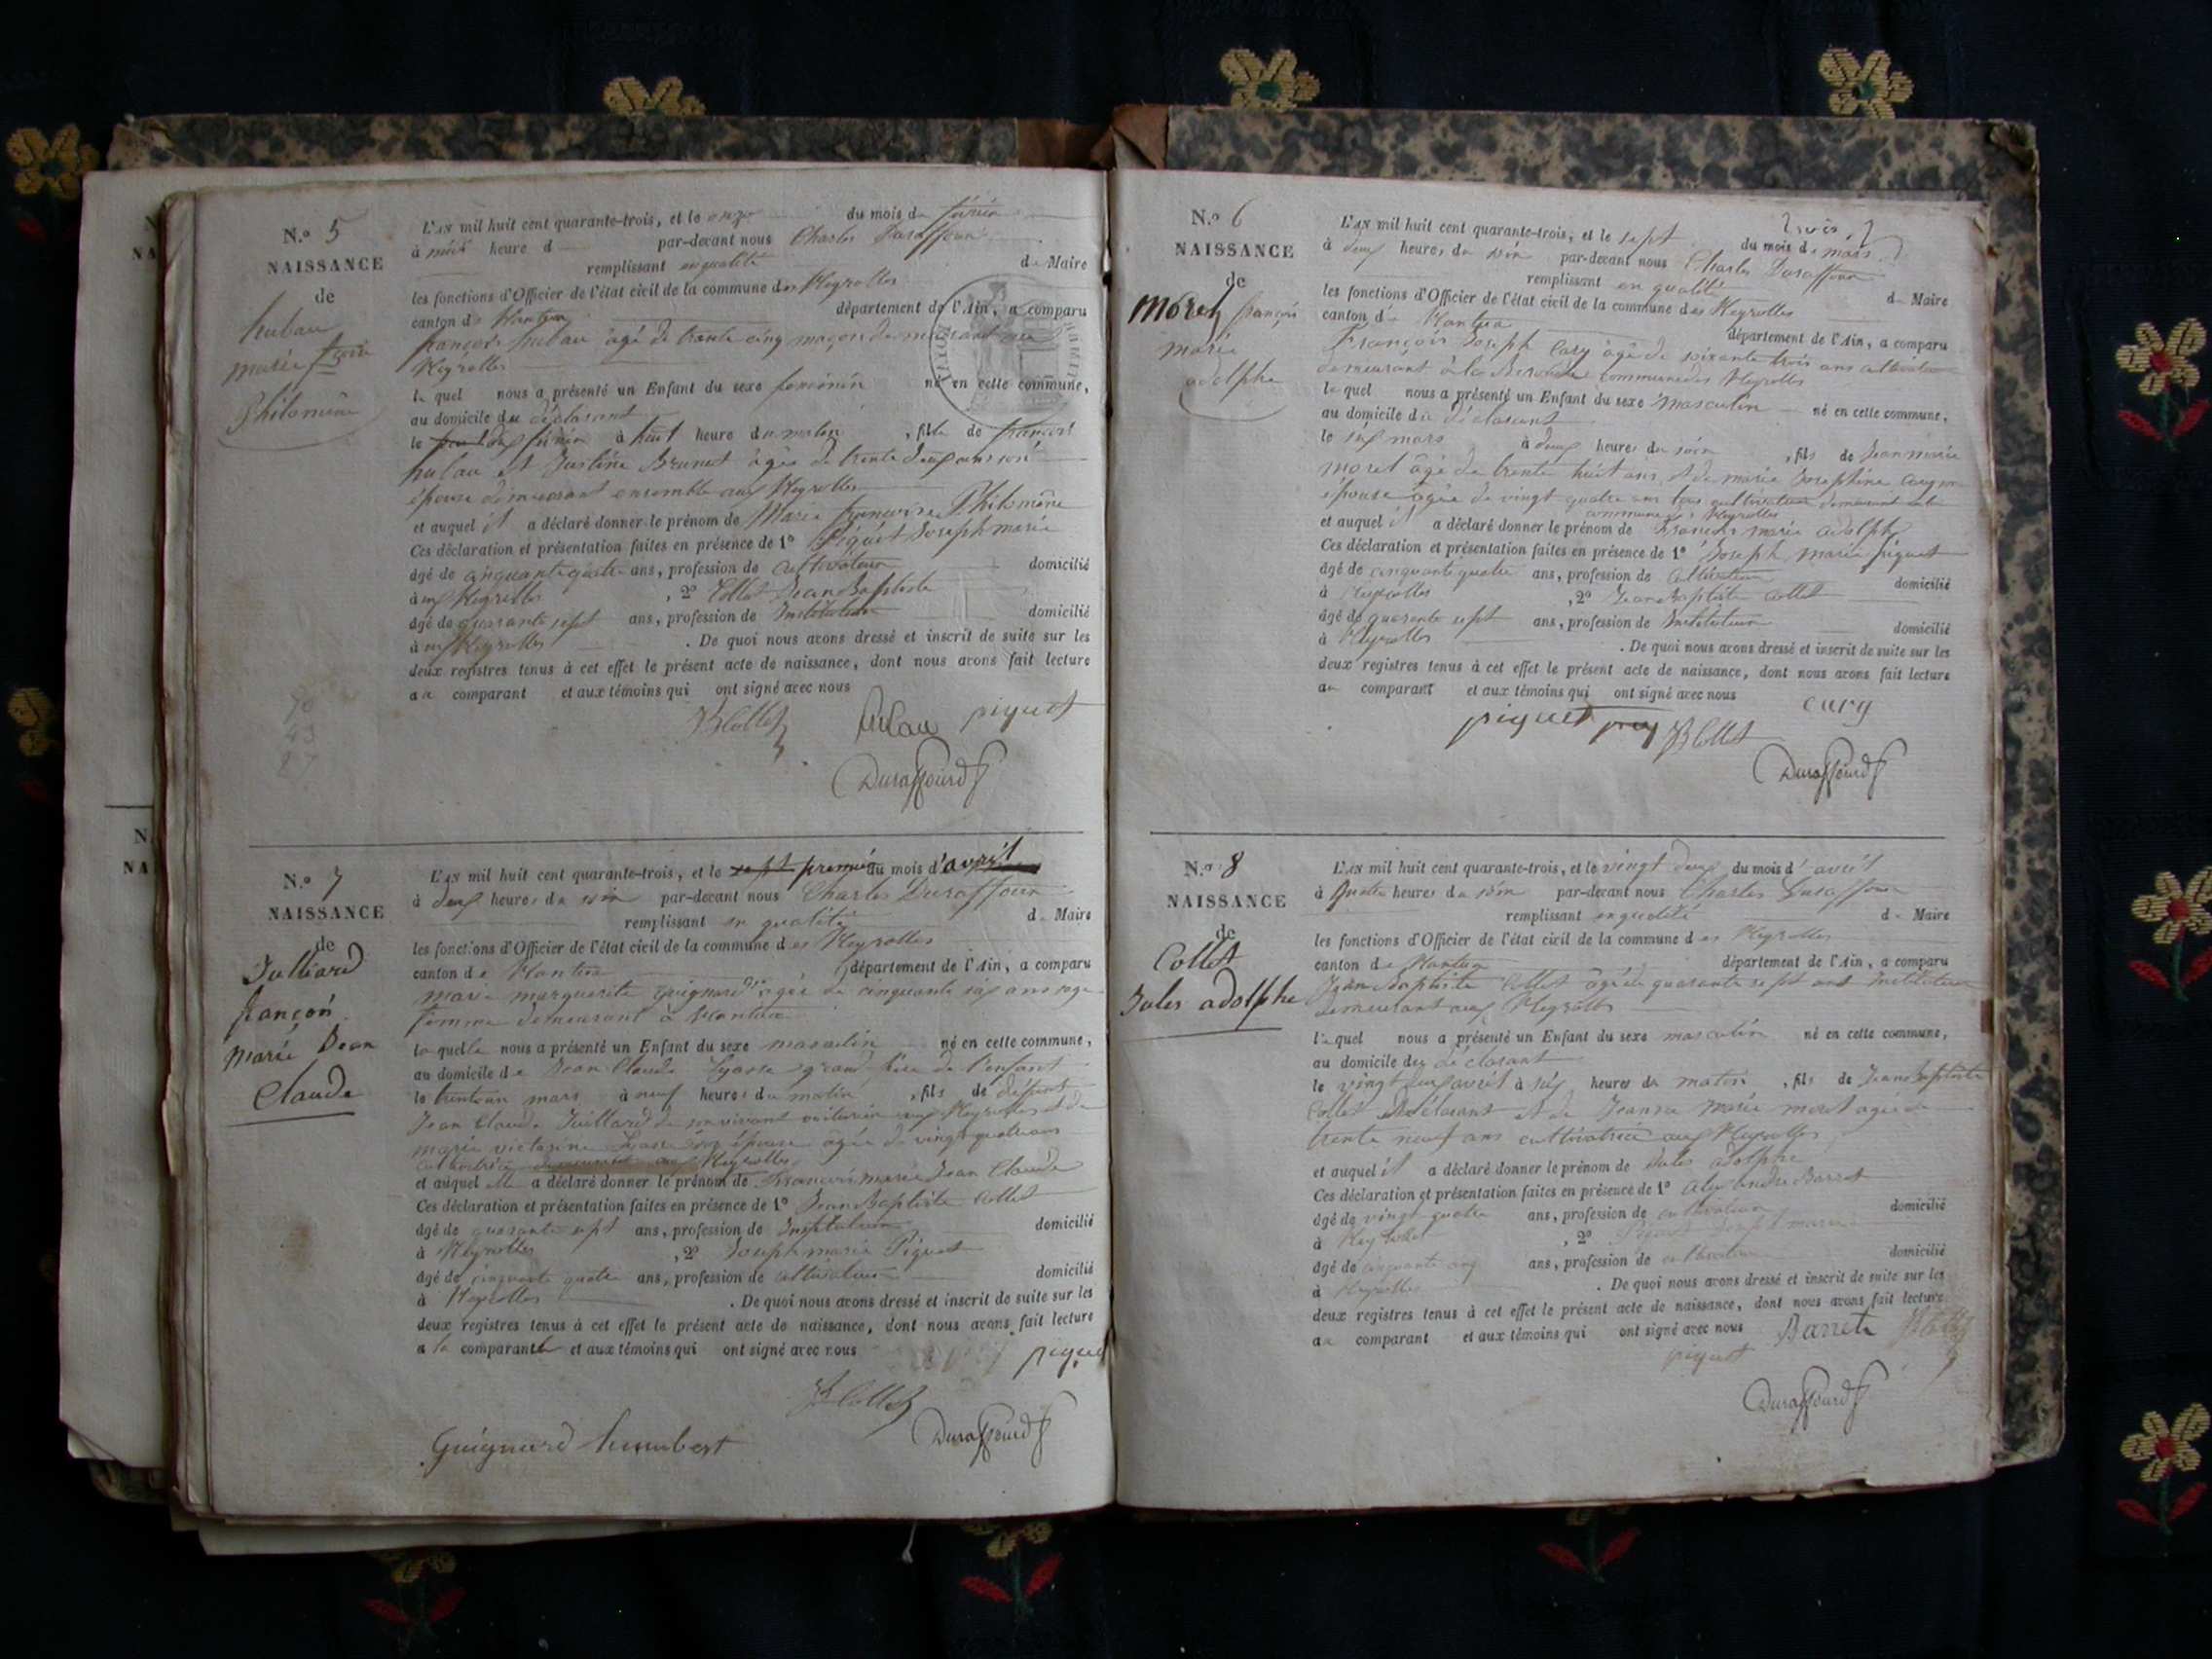 N.o 5
NAISSANCE
de
hubau
marie fçoise
Philomène
L'AN mil huit cent quarante-trois, et le onze du mois de février
à midi heure d par-devant nous Charles Duraffour
remplissant en qualité de Maire
les fonctions d'Officier de l'état civil de la commune des Neyrolles
canton de Nantua département de l'Ain, a comparu
françois hubau âgé de trente cinq maçon demeurant aux
Neyrolles
le quel nous a présenté un Enfant du sexe féminin né en cette commune,
au domicile du déclarant
le dix février à huit heure du matin, fille de françois
hubau et Justine Brunet âgée de trente deux ans son
épouse demeurant ensemble aux Neyrolles
et auquel il a déclaré donner le prénom de Marie françoise Philomène
Ces déclaration et présentation faites en présence de 1o Piquet Joseph marie
âgé de cinquante quatre ans, profession de cultivateur domicilié
à aux Neyrolles, 2o Collet Jean Baptiste
âgé de quarante sept ans, profession de Instituteur domicilié
à aux Neyrolles. De quoi nous avons dressé et inscrit de suite sur les
deux registres tenus à cet effet le présent acte de naissance, dont nous avons fait lecture
au comparant et aux témoins qui ont signé avec nous
JBCollet hubau piquet
Duraffourd
N.o 7
NAISSANCE
de
Julliard
françois
Marie Jean
Claude
L'AN mil huit cent quarante-trois, et le sept premier du mois d'avril
à deux heures du soir par-devant nous Charles Duraffour
remplissant en qualité de Maire
les fonctions d'Officier de l'état civil de la commune des Neyrolles
canton de Nantua département de l'Ain, a comparu
marie marguerite guignard âgée de cinquante six ans sage
femme demeurant à Nantua
la quelle nous a présenté un Enfant du sexe masculin né en cette commune,
au domicile de Jean Claude grand père de l'enfant
le trente un mars à neuf heures du matin, fils de défunt
Jean Claude Juillard de son vivant voiturier aux Neyrolles et de
marie victorine son épouse agée de vingt quatre ans
cultivatrice demeurant aux Neyrolles
et auquel elle a déclaré donner le prénom de François marie Jean Claude
Ces déclaration et présentation faites en présence de 1o Jean Baptiste Collet
âgé de quarante sept ans, profession de Instituteur domicilié
à Neyrolles, 2o Joseph marie Piquet
âgé de cinquante quatre ans, profession de cultivateur domicilié
à Neyrolles. De quoi nous avons dressé et inscrit de suite sur les
deux registres tenus à cet effet le présent acte de naissance, dont nous avons fait lecture
a la comparante et aux témoins qui ont signé avec nous
piquet
JBCollet
Guignard humbert Duraffourd
N.o 6
NAISSANCE
de
Morel françois
marie
adolphe
L'AN mil huit cent quarante-trois, et le sept du mois de mars
à deux heures du soir par-devant nous Charles Duraffour
remplissant en qualité de Maire
les fonctions d'Officier de l'état civil de la commune des Neyrolles
canton de Nantua département de l'Ain, a comparu
François Joseph Cary âgé de soixante trois ans cultivateur
demeurant à la commune des Neyrolles
le quel nous a présenté un Enfant du sexe masculin né en cette commune,
au domicile du déclarant
le six mars à deux heures du soir, fils de Jean marie
morel âgé de trente huit ans et de marie Josephine Cary son
épouse âgée de vingt quatre ans tous cultivateurs demeurant
commune des Neyrolles
et auquel il a déclaré donner le prénom de François marie adolphe
Ces déclaration et présentation faites en présence de 1o Joseph marie piquet
âgé de cinquante quatre ans, profession de cultivateur domicilié
à Neyrolles, 2o Jean Baptiste Collet
âgé de quarante sept ans, profession de Instituteur domicilié
à Neyrolles. De quoi nous avons dressé et inscrit de suite sur les
deux registres tenus à cet effet le présent acte de naissance, dont nous avons fait lecture
au comparant et aux témoins qui ont signé avec nous
cary
piquet JBCollet
Duraffourd
N.o 8
NAISSANCE
de
Collet
Jules adolphe
L'AN mil huit cent quarante-trois, et le vingt deux du mois d'avril
à quatre heures du soir par-devant nous Charles Duraffour
remplissant en qualité de Maire
les fonctions d'Officier de l'état civil de la commune des Neyrolles
canton de Nantua département de l'Ain, a comparu
Jean Baptiste Collet âgé de quarante sept ans Instituteur
demeurant aux Neyrolles
le quel nous a présenté un Enfant du sexe masculin né en cette commune,
au domicile du déclarant
le vingt deux avril à six heures du matin, fils de Jean Baptiste
Collet déclarant et de Jeanne Marie morel agée de
trente neuf ans cultivatrice aux Neyrolles
et auquel il a déclaré donner le prénom de Jules adolphe
Ces déclaration et présentation faites en présence de 1o Barret
âgé de vingt quatre ans, profession de cultivateur domicilié
à Neyrolles, 2o Piquet Joseph marie
âgé de cinquante cinq ans, profession de cultivateur domicilié
à Neyrolles. De quoi nous avons dressé et inscrit de suite sur les
deux registres tenus à cet effet le présent acte de naissance, dont nous avons fait lecture
au comparant et aux témoins qui ont signé avec nous Barret JBCollet
piquet
Duraffourd